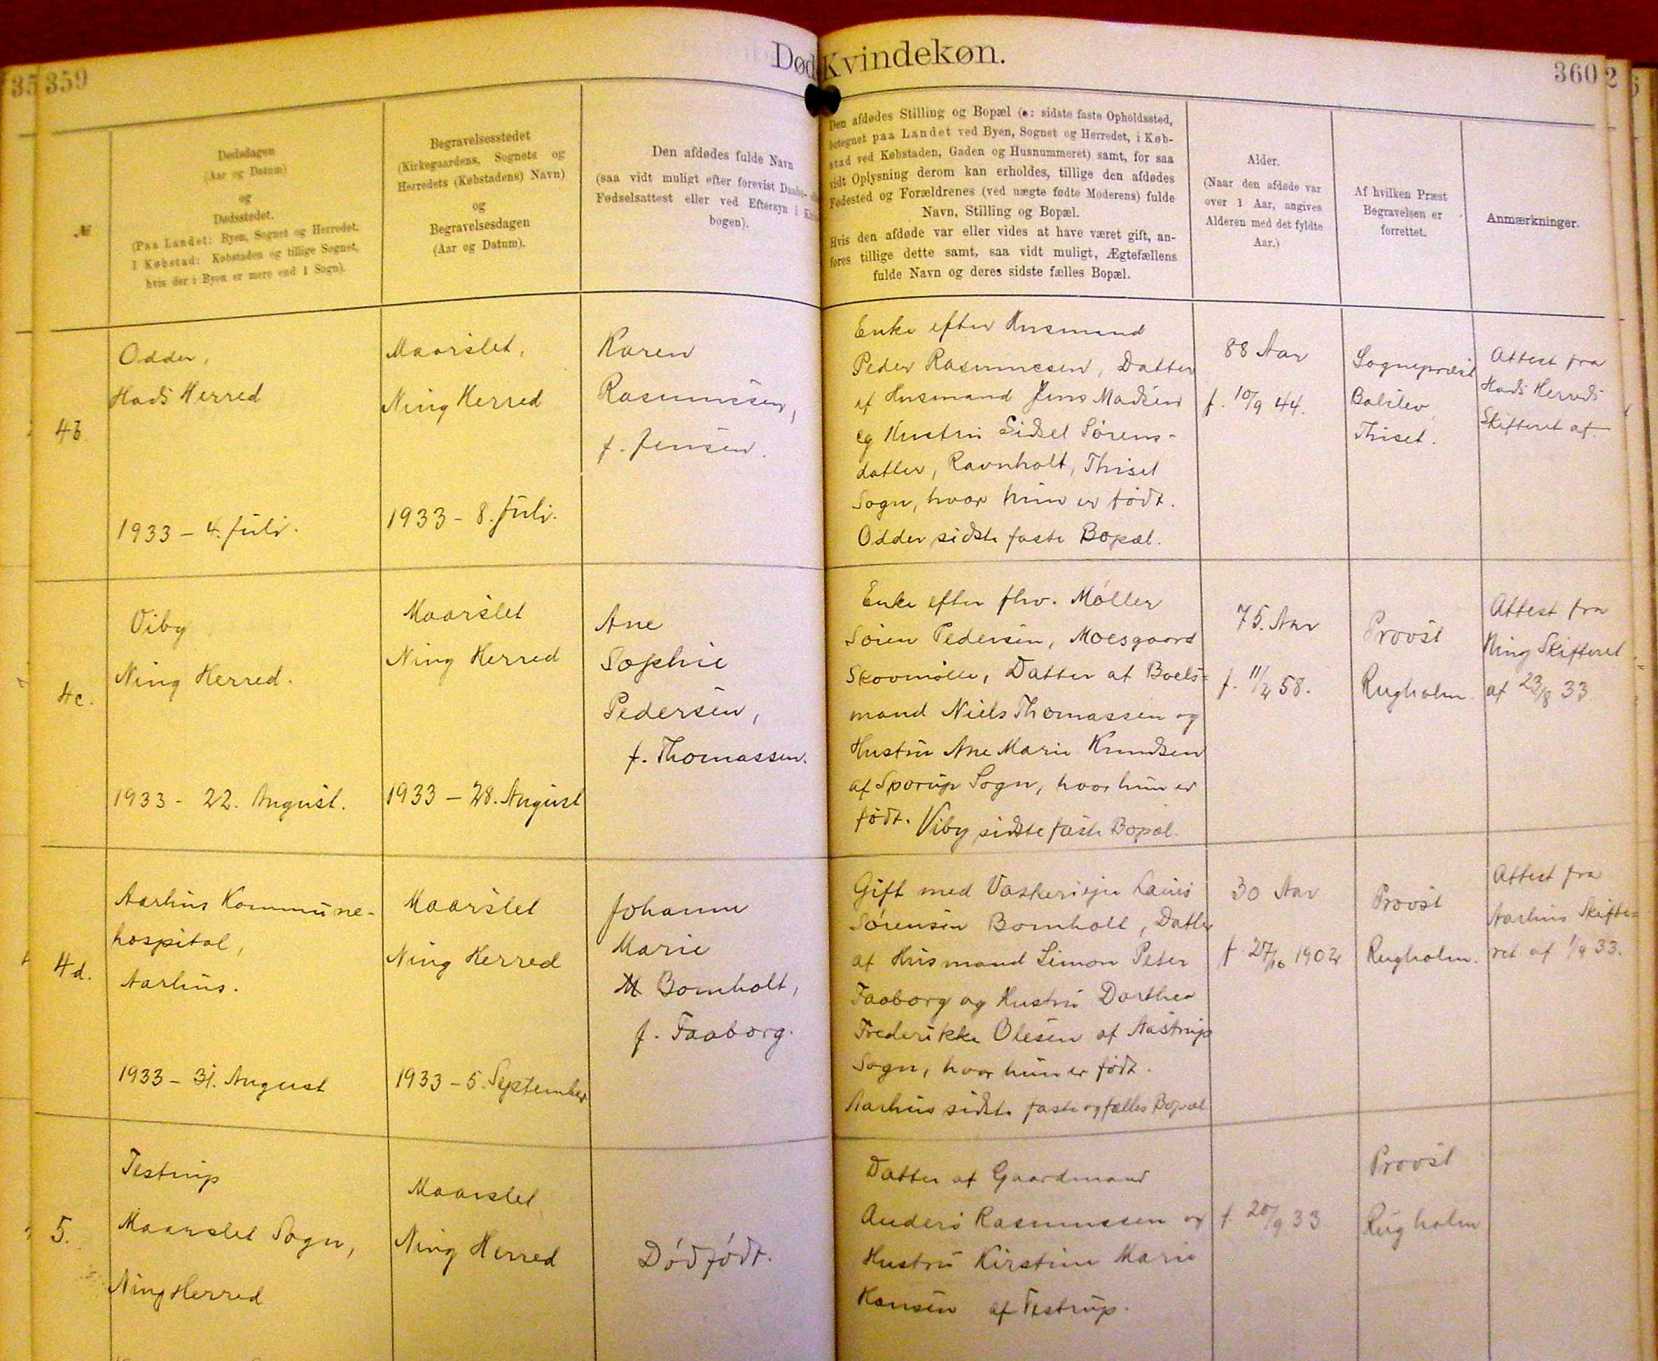 359
Død Kvindekøn.
360
№
Dødsdagen
(Aar og Datum)
og
Dødsstedet.
(Paa Landet: Byen, Sognet og Herredet.
I Købstad: Købstaden og tillige Sognet,
hvis der i Byen er mere end 1 Sogn).
Begravelsesstedet
(Kirkegaardens, Sognets og
Herredets (Købstadens) Navn)
og
Begravelsesdagen
(Aar og Datum).
Den afdødes fulde Navn
(saa vidt muligt efter forevist
Fødselsattest eller ved Eftersyn i
bogen).
Den afdødes Stilling og Bopæl (ɔ: sidste faste Opholdssted,
betegnet paa Landet ved Byen, Sognet og Herredet, i Køb-
stad ved Købstaden, Gaden og Husnummeret) samt, for saa
vidt Oplysning derom kan erholdes, tillige den afdødes
Fødested og Forældrenes (ved uægte fødte Moderens) fulde
Navn, Stilling og Bopæl.
Hvis den afdøde var eller vides at have været gift, an-
føres tillige dette samt, saa vidt muligt, Ægtefællens
fulde Navn og deres sidste fælles Bopæl.
Alder.
(Naar den afdøde var
over 1 Aar, angives
Alderen med det fyldte
Aar.)
Af hvilken Præst
Begravelsen er
forrettet.
Anmærkninger.
4b
Odder,
Hads Herred
1933 – 4. Juli.
Maarslet,
Ning Herred
1933 – 8. Juli.
Karen
Rasmussen,
f. Jensen.
Enke efter Husmand
Peder Rasmussen, Datter
af Husmand Jens Madsen
og Hustru Sidsel Sørens-
datter, Ravnholt, Thiset
Sogn, hvor hun er født.
Odder sidste faste Bopæl.
88 Aar
f. 10/9 44.
Sognepræst
Balslev
Thiset.
Attest fra
Hads Herreds
Skifteret af
4c.
Viby
Ning Herred.
1933 - 22. August.
Maarslet
Ning Herred
1933 – 28. August
Ane
Sophie
Pedersen,
f. Thomassen.
Enke efter fhv. Møller
Søren Pedersen, Moesgaard
Skovmølle, Datter af Boels-
mand Niels Thomassen og
Hustru Ane Marie Knudsen
af Sporup Sogn, hvor hun er
født. Viby sidste faste Bopæl.
75. Aar
f. 11/4 58.
Provst
Rugholm.
Attest fra
Ning Skifteret
af 23/8 33
4d.
Aarhus Kommune-
hospital,
Aarhus.
1933 – 31. August
Maarslet
Ning Herred
1933 – 5. September
Johanne
Marie
Bomholt,
f. Faaborg.
Gift med Vaskeriejer Laurs
Sørensen Bomholt, Datter
af Husmand Simon Peter
Faaborg og Hustru Dorthea
Frederikke Olesen af Aastrup
Sogn, hvor hun er født.
Aarhus sidste faste og fælles Bopæl
30 Aar
f 27/10 1902
Provst
Rugholm.
Attest fra
Aarhus Skifte-
ret af 1/9 33.
5.
Testrup
Maarslet Sogn,
Ning Herred
Maarslet
Ning Herred
Dødfødt.
Datter af Gaardmand
Anders Rasmussen og
Hustru Kirstine Marie
Hansen af Testrup.
f. 20/9 33
Provst
Rugholm